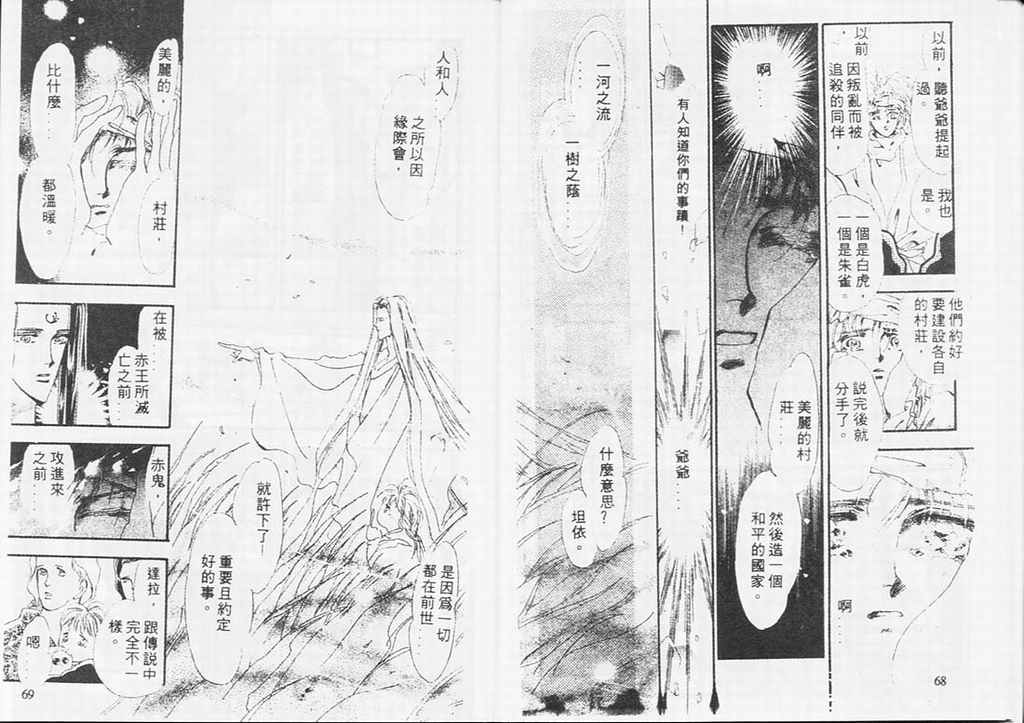 以前，聽爺爺提起
過。
我也
是。
以前，
因叛亂而被
追殺的同伴，
一個是白虎，
一個是朱雀。
他們約好
要建設各自
的村莊，
說完後就
分手了。
啊
啊……
美麗的村
莊……
然後造一個
和平的國家。
有人知道你們的事蹟！
爺爺…
一河之流
……
一樹之蔭……
什麼意思？
坦依。
68
人和人
之所以因
緣際會，
是因為一切
都在前世
就許下了—
重要且約定
好的事。
美麗的，
村莊，
比什麼……
都溫暖。
在被……
赤王所滅
亡之前……
赤鬼，
攻進來
之前……
達拉，
跟傳說中
完全不一
樣。
嗯
69